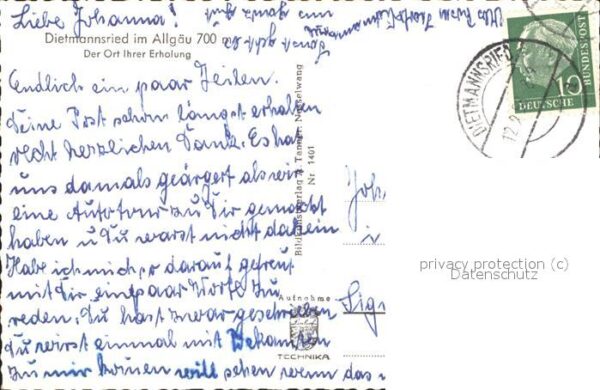 Liebe Johanna!
Dietmannsried im Allgäu 700 m
Der Ort Ihrer Erholung
Endlich ein paar Zeilen.
Deine Post schon längst erhalten
recht herzlichen Dank. Es hat
uns damals geärgert als wir
eine Autotour zu Dir gemacht
haben u Du warst nicht daheim
Habe ich mich so darauf gefreut
mit Dir ein paar Worte zu
reden. Du hast zwar geschrieben
Du wirst einmal mit Bekannten
zu mir können will sehen wenn das
uns ganz
Sonst geht es
Bildkunstverlag A. Tanner, Nesselwang
Nr 1401
Joh
Sig
Aufnahme
TECHNIKA
DIETMANNSRIED
12.9
10
DEUTSCHE
BUNDESPOST
privacy protection (c)
Datenschutz